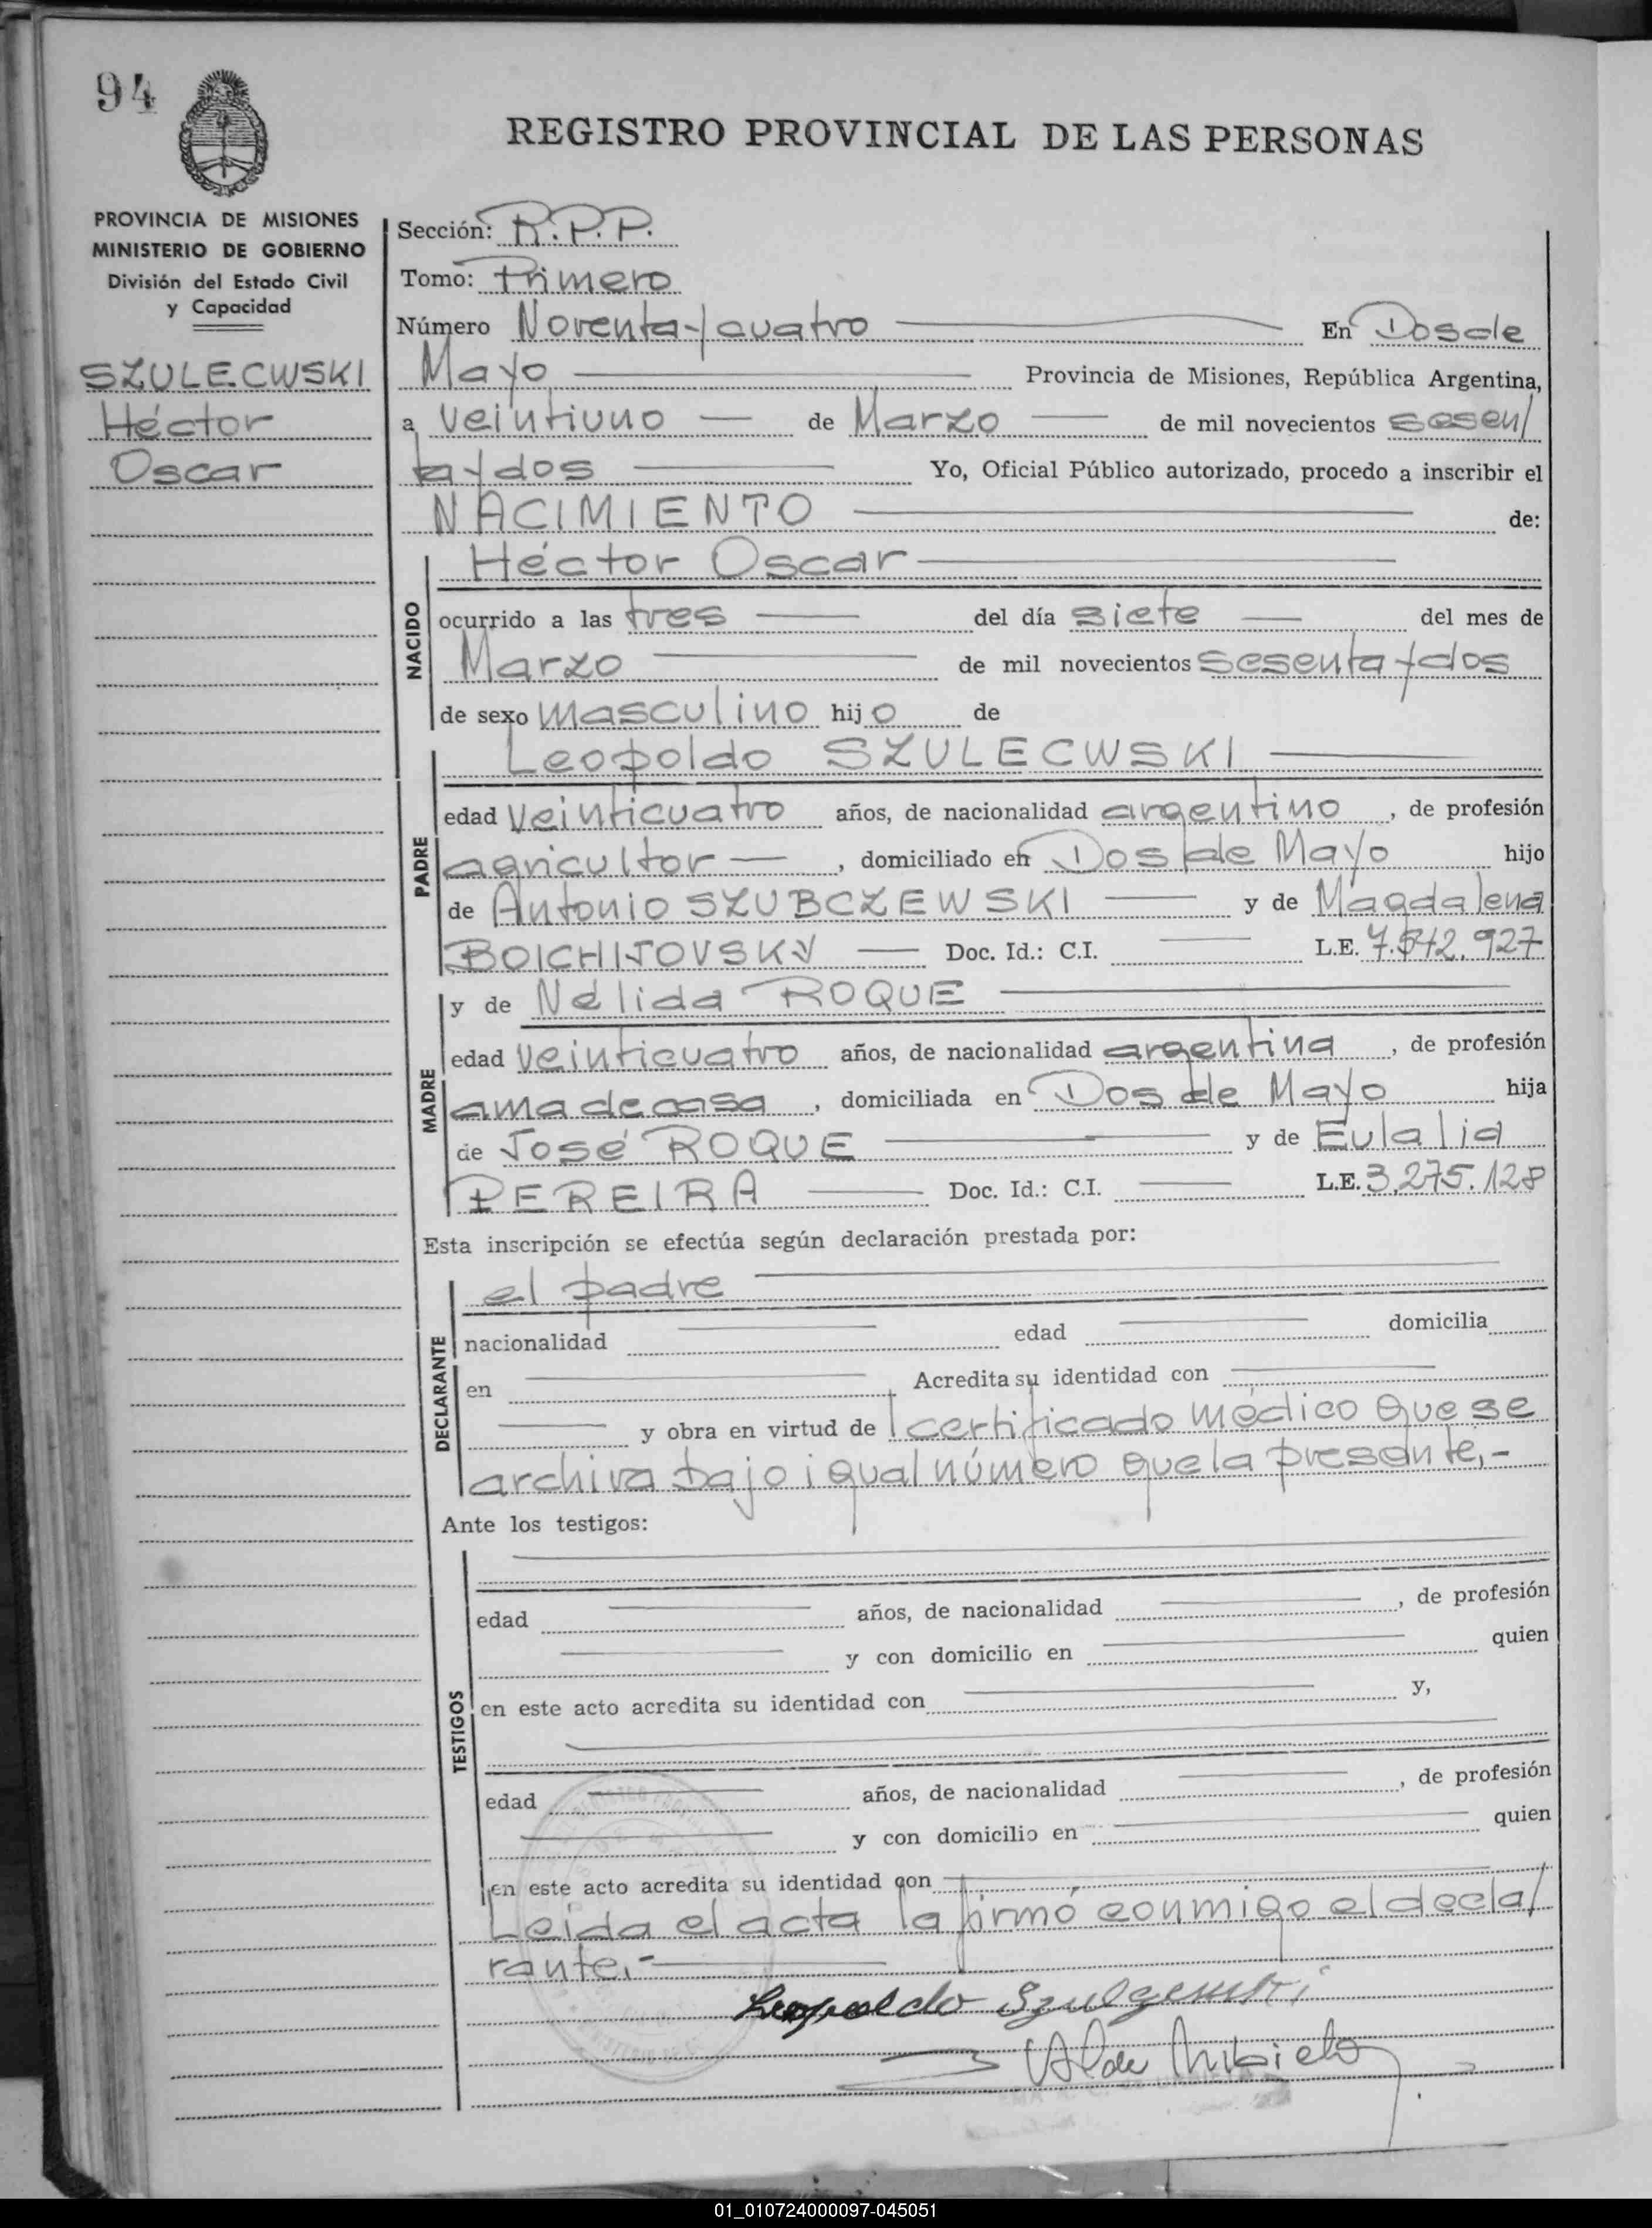 94
REGISTRO PROVINCIAL DE LAS PERSONAS
PROVINCIA DE MISIONES
MINISTERIO DE GOBIERNO
División del Estado Civil
y Capacidad
SZULECWSKI
Héctor
Oscar
Sección: R.P.P.
Tomo: Primero
Número Noventa y cuatro En Dos de
Mayo Provincia de Misiones, República Argentina,
a veintiuno de Marzo de mil novecientos sesen/
ta y dos Yo, Oficial Público autorizado, procedo a inscribir el
NACIMIENTO de:
NACIDO
Héctor Oscar
ocurrido a las tres del día siete del mes de
Marzo de mil novecientos sesenta y dos
de sexo masculino hijo de
PADRE
Leopoldo SZULECWSKI
edad veinticuatro años, de nacionalidad argentino, de profesión
agricultor, domiciliado en Dos de Mayo hijo
de Antonio SZUBCZEWSKI y de Magdalena
BOICHIJOVSKY Doc. Id.: C.I. L.E. 7.542.927
MADRE
y de Nélida ROQUE
edad veinticuatro años, de nacionalidad argentina, de profesión
ama de casa, domiciliada en Dos de Mayo hija
de José ROQUE y de Eulalia
PEREIRA Doc. Id.: C.I. L.E. 3.275.128
Esta inscripción se efectúa según declaración prestada por:
DECLARANTE
el padre
nacionalidad edad domicilia
en Acredita su identidad con
y obra en virtud de certificado médico que se
archiva bajo igual número que la presente.-
Ante los testigos:
TESTIGOS
edad años, de nacionalidad , de profesión
y con domicilio en quien
en este acto acredita su identidad con y,
edad años, de nacionalidad , de profesión
y con domicilio en quien
en este acto acredita su identidad con
Leida el acta la firmó conmigo el decla/
rante.-
Leopoldo
01_010724000097-045051